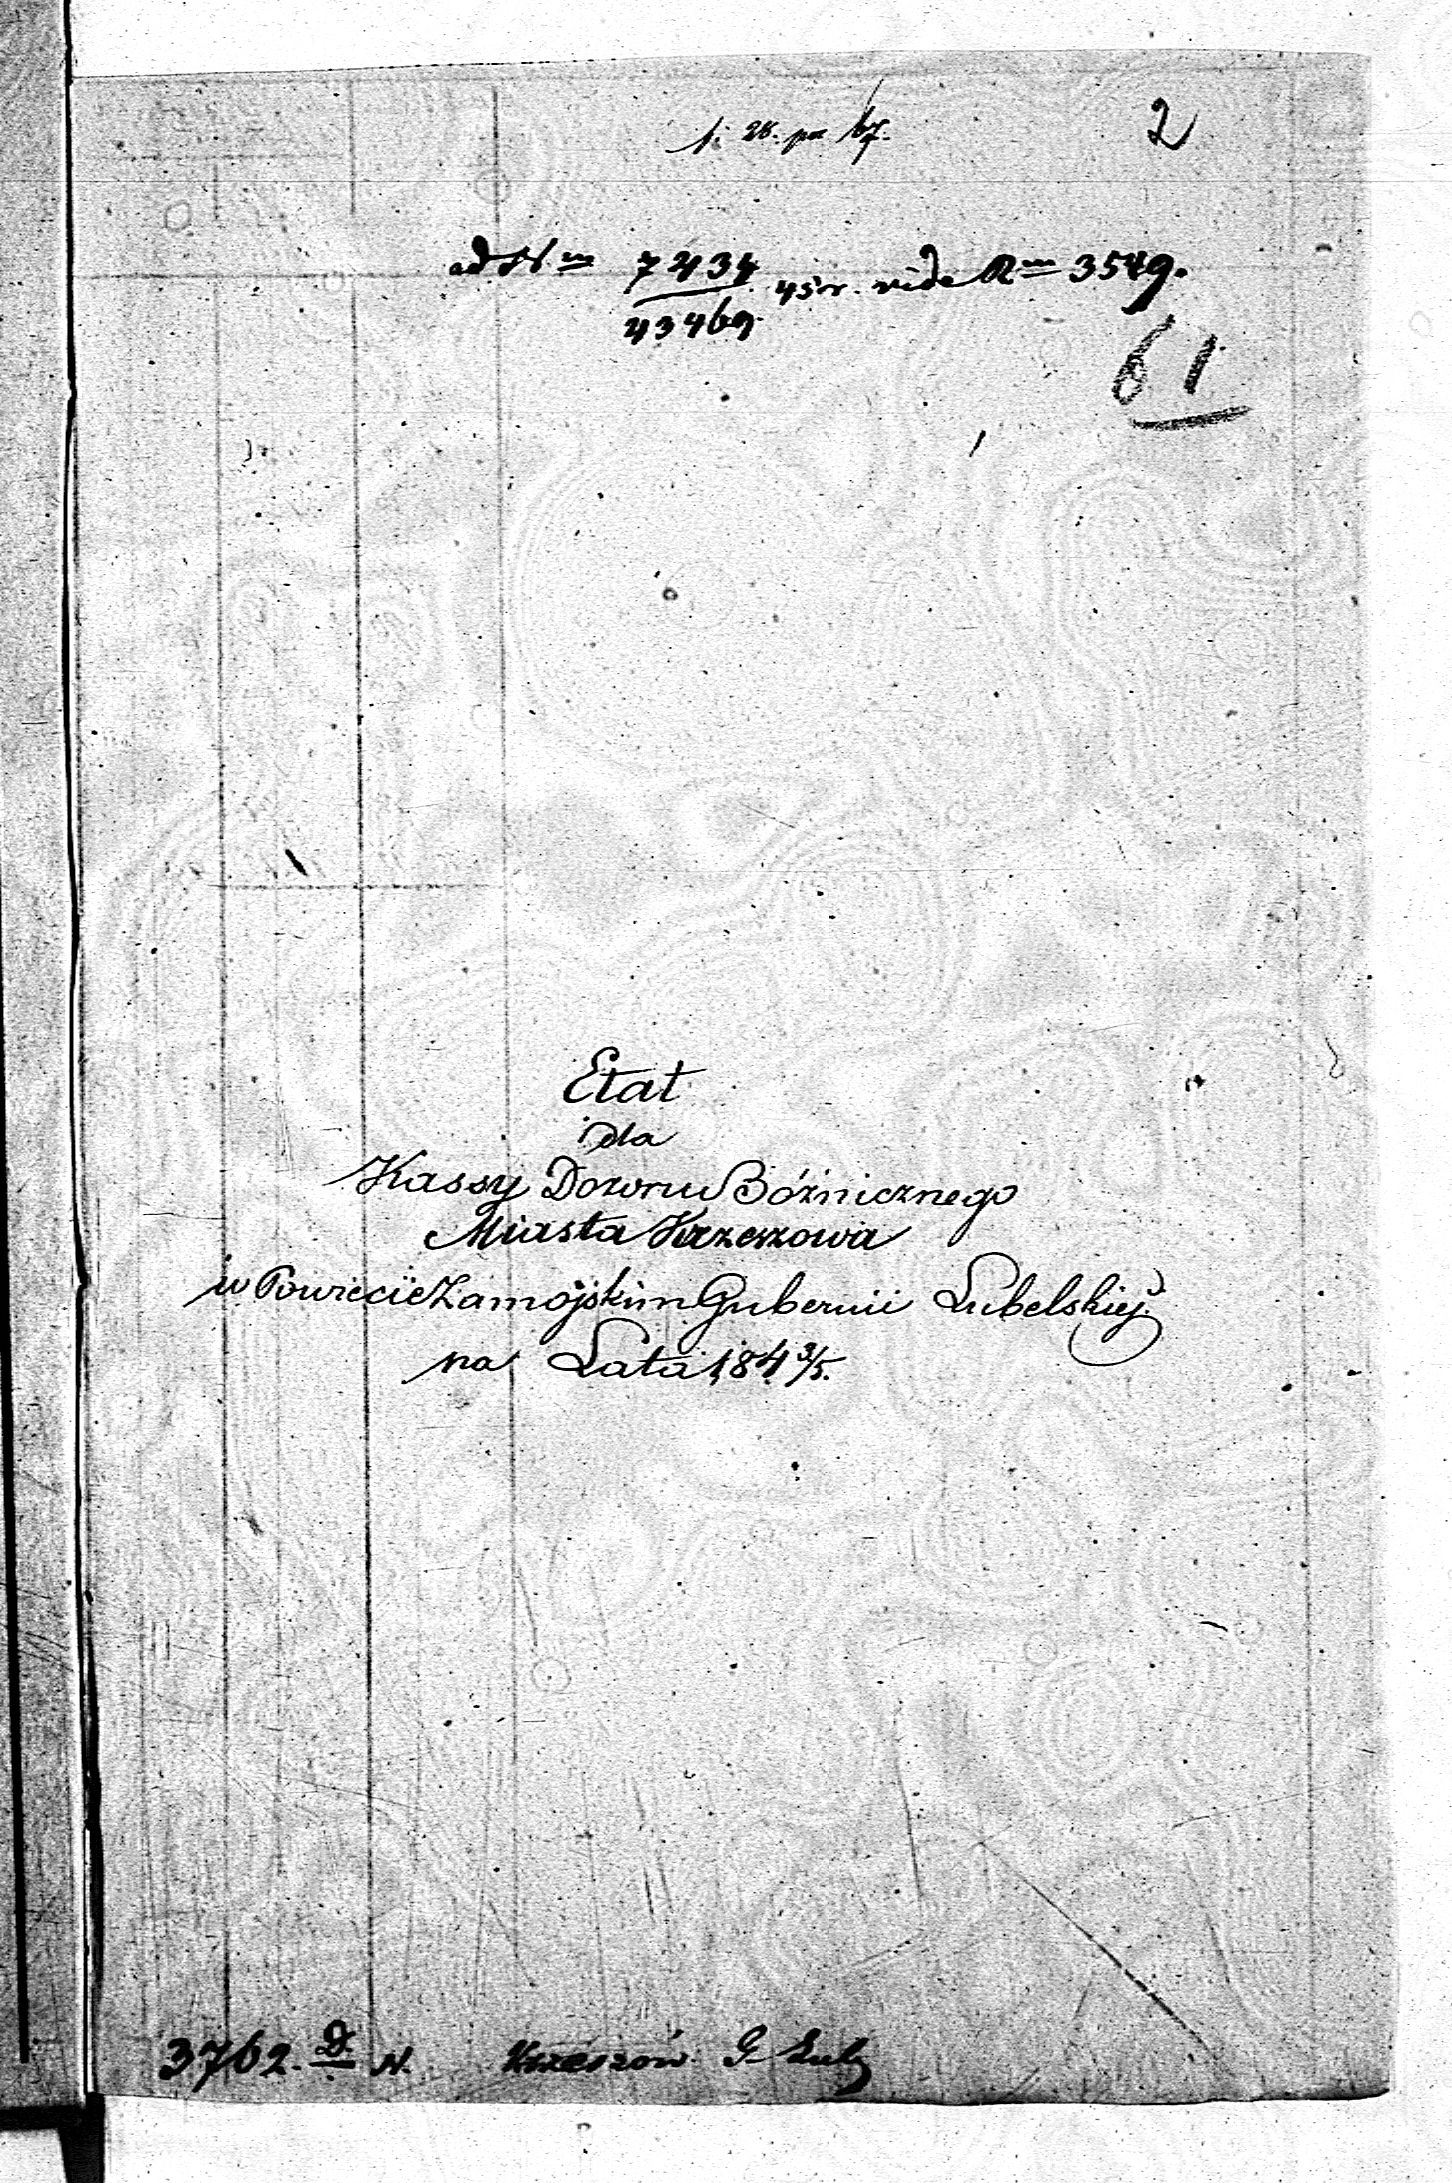 2
ad N <u>m</u> 7434/43469. vide R <u>m</u> 3549.
61
Etat
dla
Kassy Dozoru Bóżnicznego
Miasta Krzeszowa
w Powiecie Zamojskim Gubernii Lubelskiej
na Lata 184 3/5.
3762. D. N. Krzeszów G. Lub